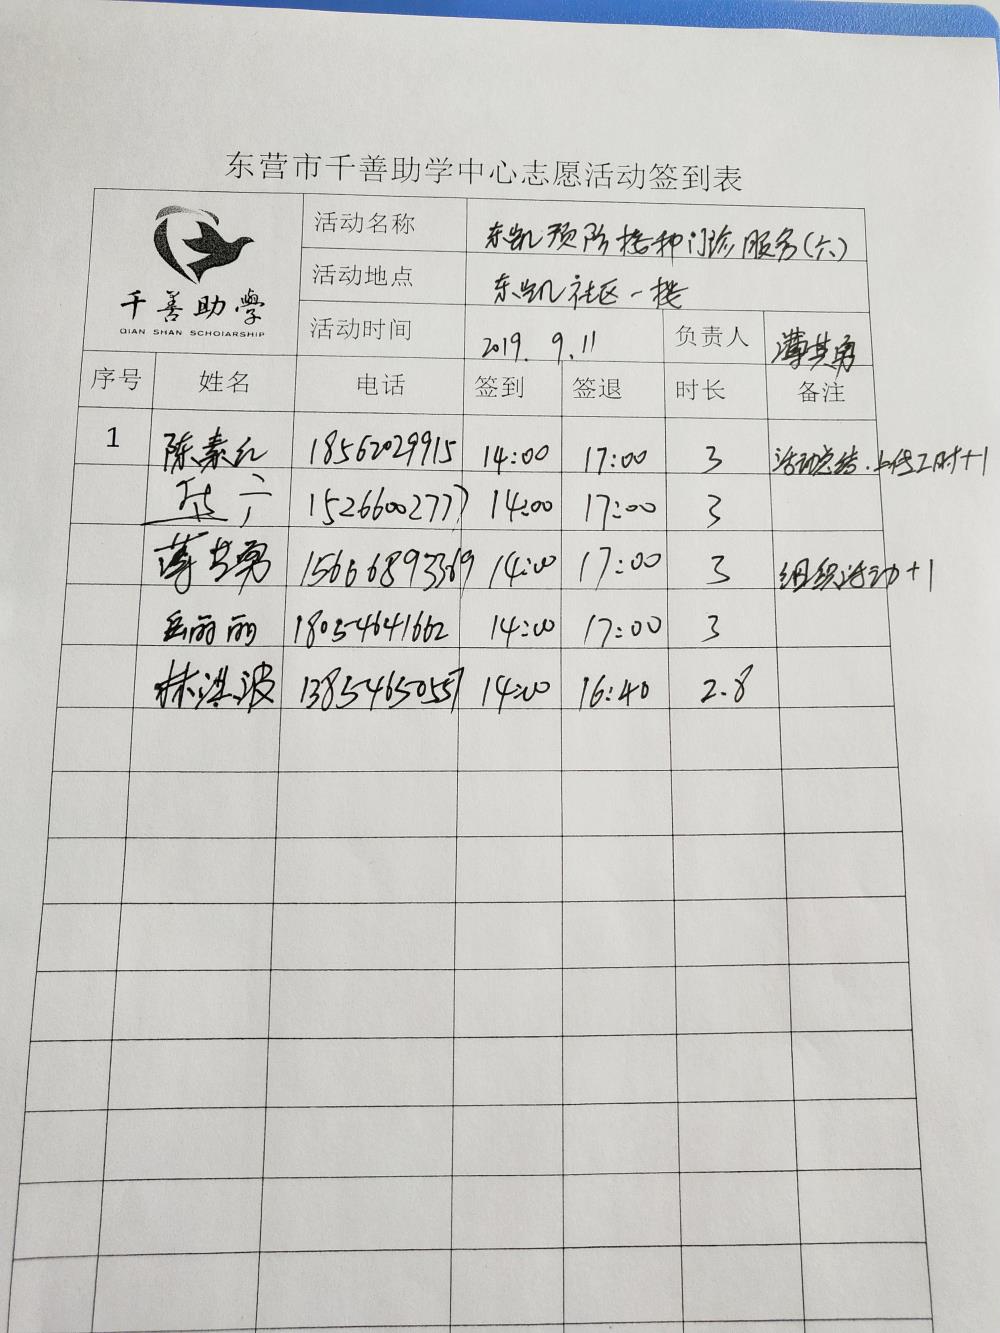 东营市千善助学中心志愿活动签到表
千善助學
QIAN SHAN SCHOLARSHIP
活动名称 东凯预防接种门诊服务(六)
活动地点 东凯社区一楼
活动时间 2019. 9. 11 负责人 薄其勇
序号 姓名 电话 签到 签退 时长 备注
1 陈素红 18562029915 14:00 17:00 3 活动总结.上传工时+1
15266002777 14:00 17:00 3
薄其勇 15666893369 14:00 17:00 3 组织活动+1
岳丽丽 18054641662 14:00 17:00 3
林洪波 13854650557 14:00 16:40 2.8